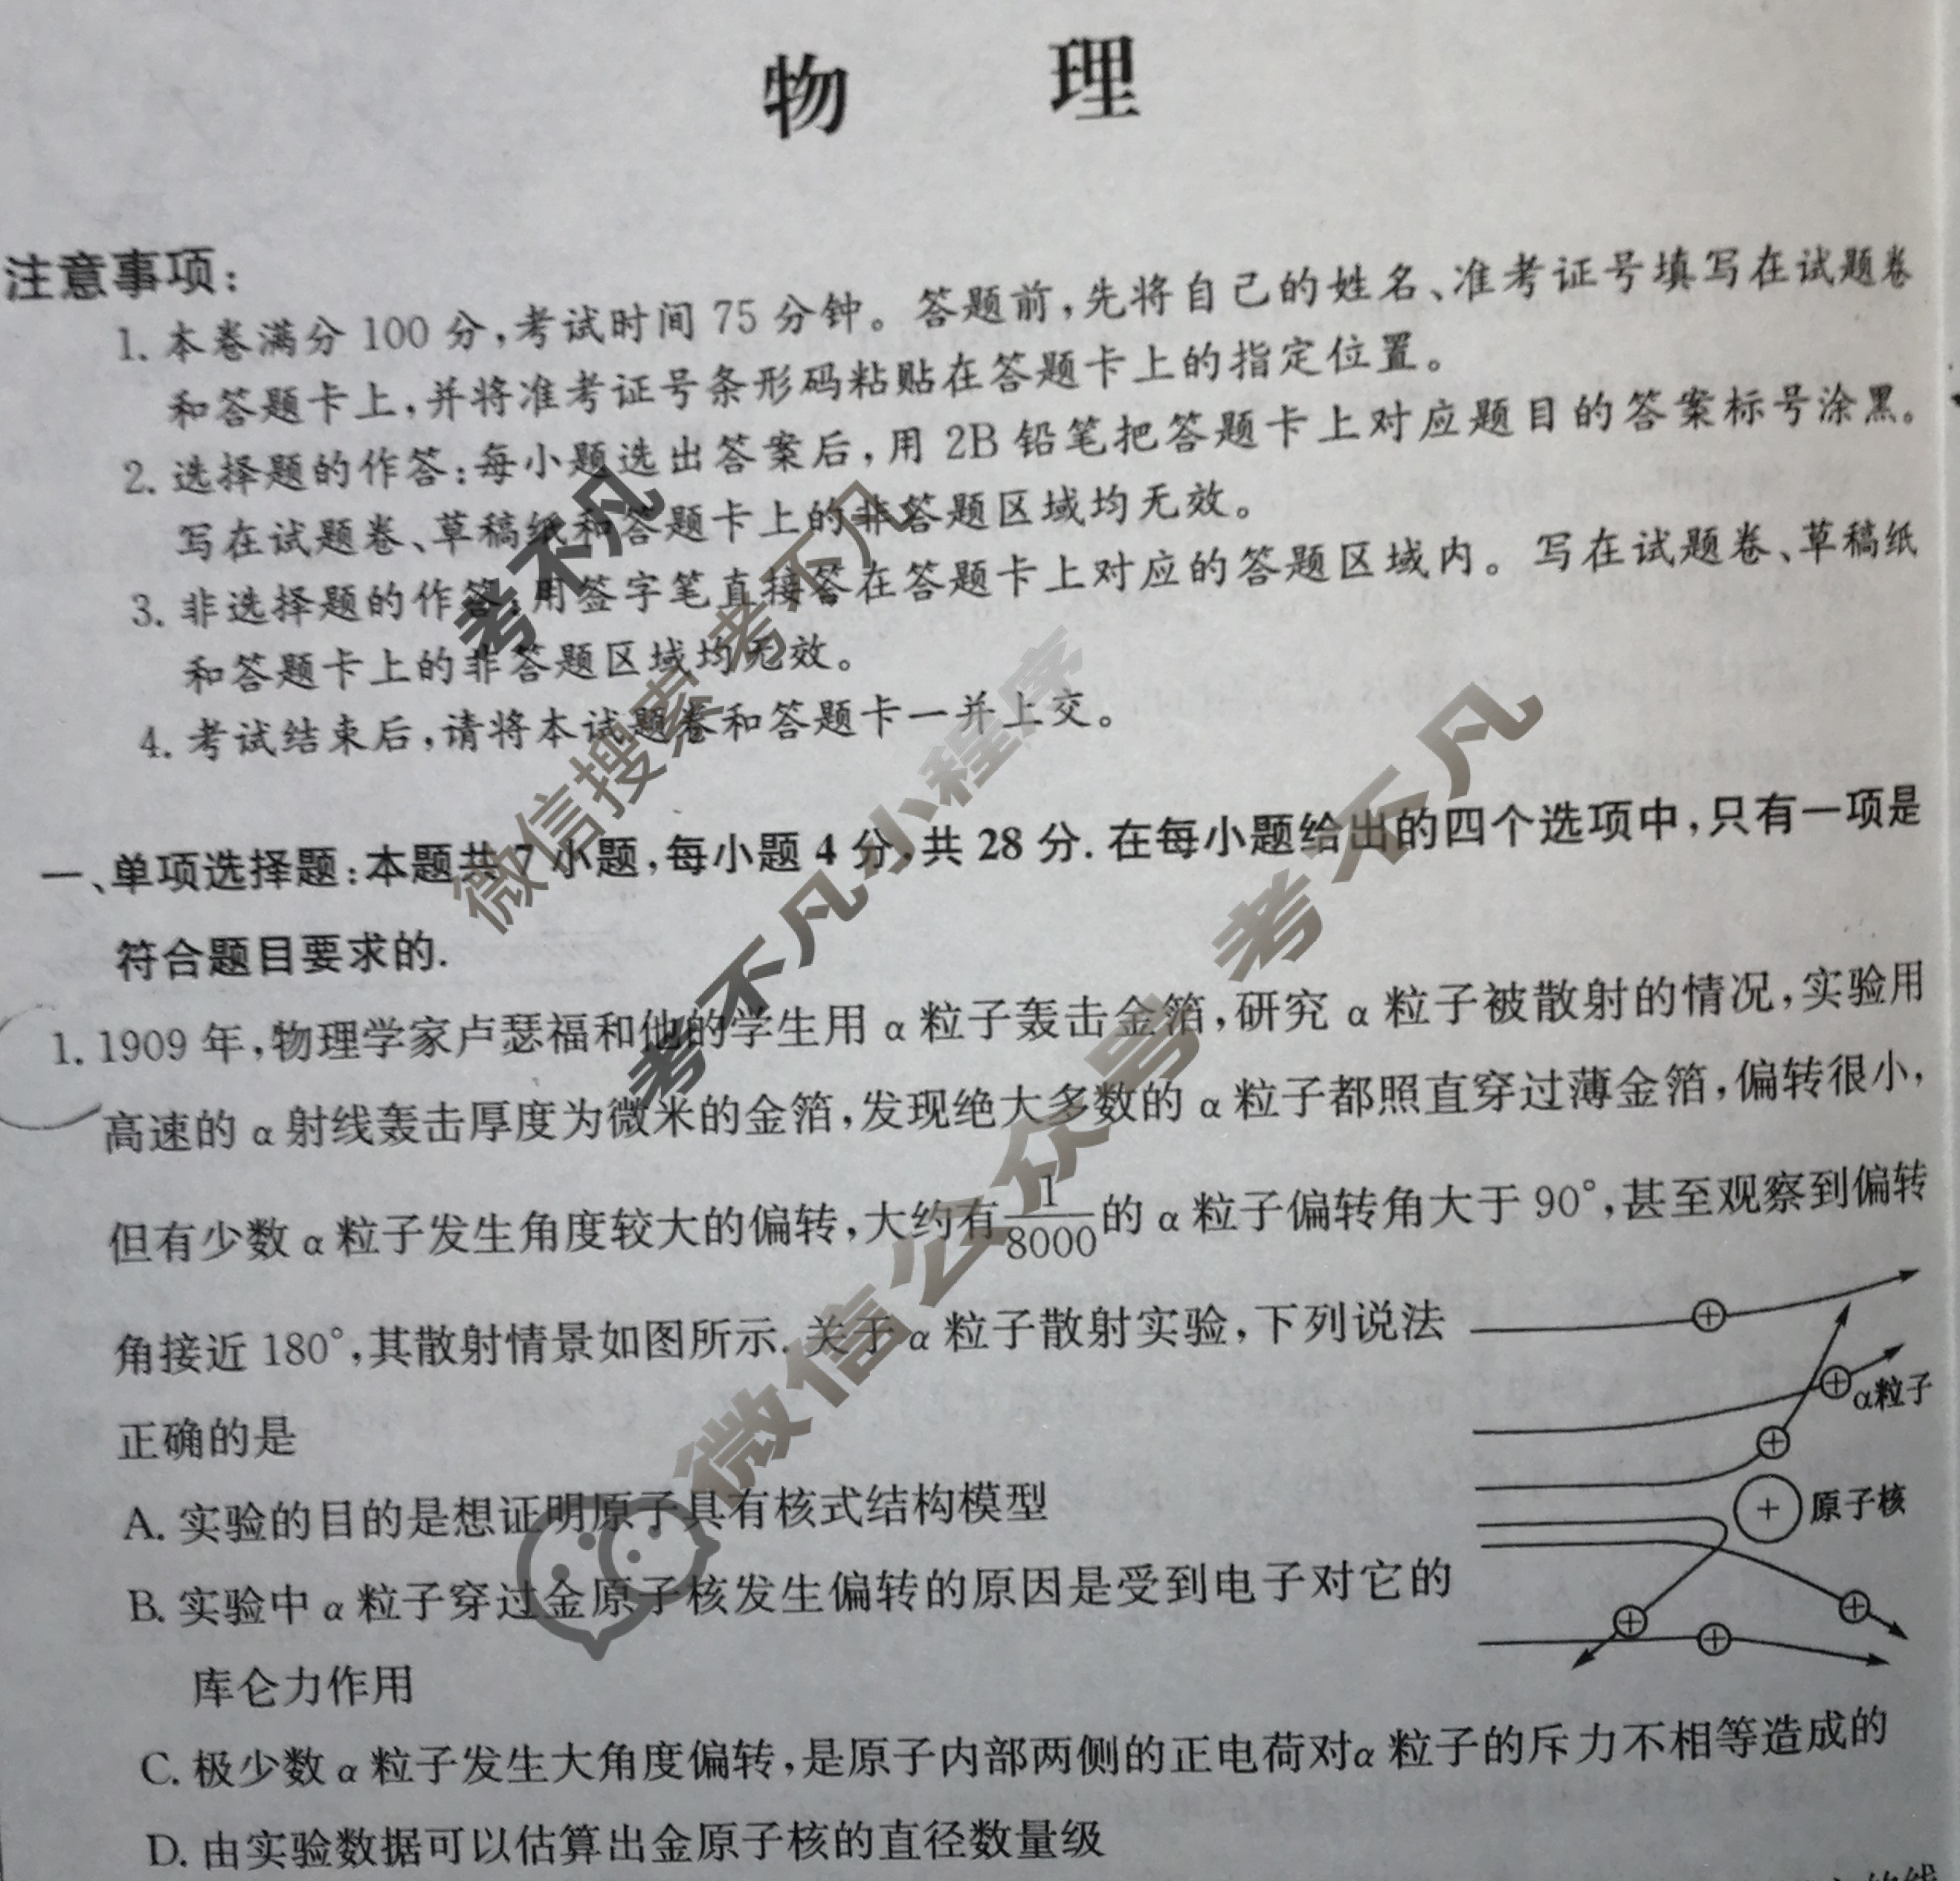 物 理
注意事项:
1. 本卷满分 100 分,考试时间 75 分钟。答题前,先将自己的姓名、准考证号填写在试题卷
和答题卡上,并将准考证号条形码粘贴在答题卡上的指定位置。
2. 选择题的作答:每小题选出答案后,用 2B 铅笔把答题卡上对应题目的答案标号涂黑。
写在试题卷、草稿纸和答题卡上的非答题区域均无效。
3. 非选择题的作答:用签字笔直接答在答题卡上对应的答题区域内。写在试题卷、草稿纸
和答题卡上的非答题区域均无效。
4. 考试结束后,请将本试题卷和答题卡一并上交。
一、单项选择题:本题共 7 小题,每小题 4 分,共 28 分. 在每小题给出的四个选项中,只有一项是
符合题目要求的.
1. 1909 年,物理学家卢瑟福和他的学生用 α 粒子轰击金箔,研究 α 粒子被散射的情况,实验用
高速的 α 射线轰击厚度为微米的金箔,发现绝大多数的 α 粒子都照直穿过薄金箔,偏转很小,
但有少数 α 粒子发生角度较大的偏转,大约有 1/8000 的 α 粒子偏转角大于 90°,甚至观察到偏转
角接近 180°,其散射情景如图所示. 关于 α 粒子散射实验,下列说法
正确的是
A. 实验的目的是想证明原子具有核式结构模型
B. 实验中 α 粒子穿过金原子核发生偏转的原因是受到电子对它的
库仑力作用
C. 极少数 α 粒子发生大角度偏转,是原子内部两侧的正电荷对α 粒子的斥力不相等造成的
D. 由实验数据可以估算出金原子核的直径数量级
α粒子
原子核
考不凡
微信搜索 考不凡
考不凡小程序
微信公众号 考不凡